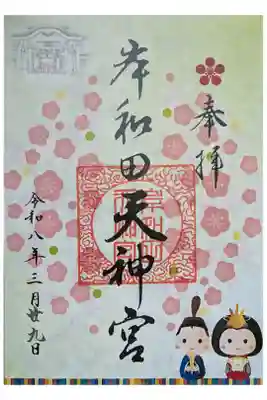 奉拝
岸和田天神宮
令和八年三月廿九日